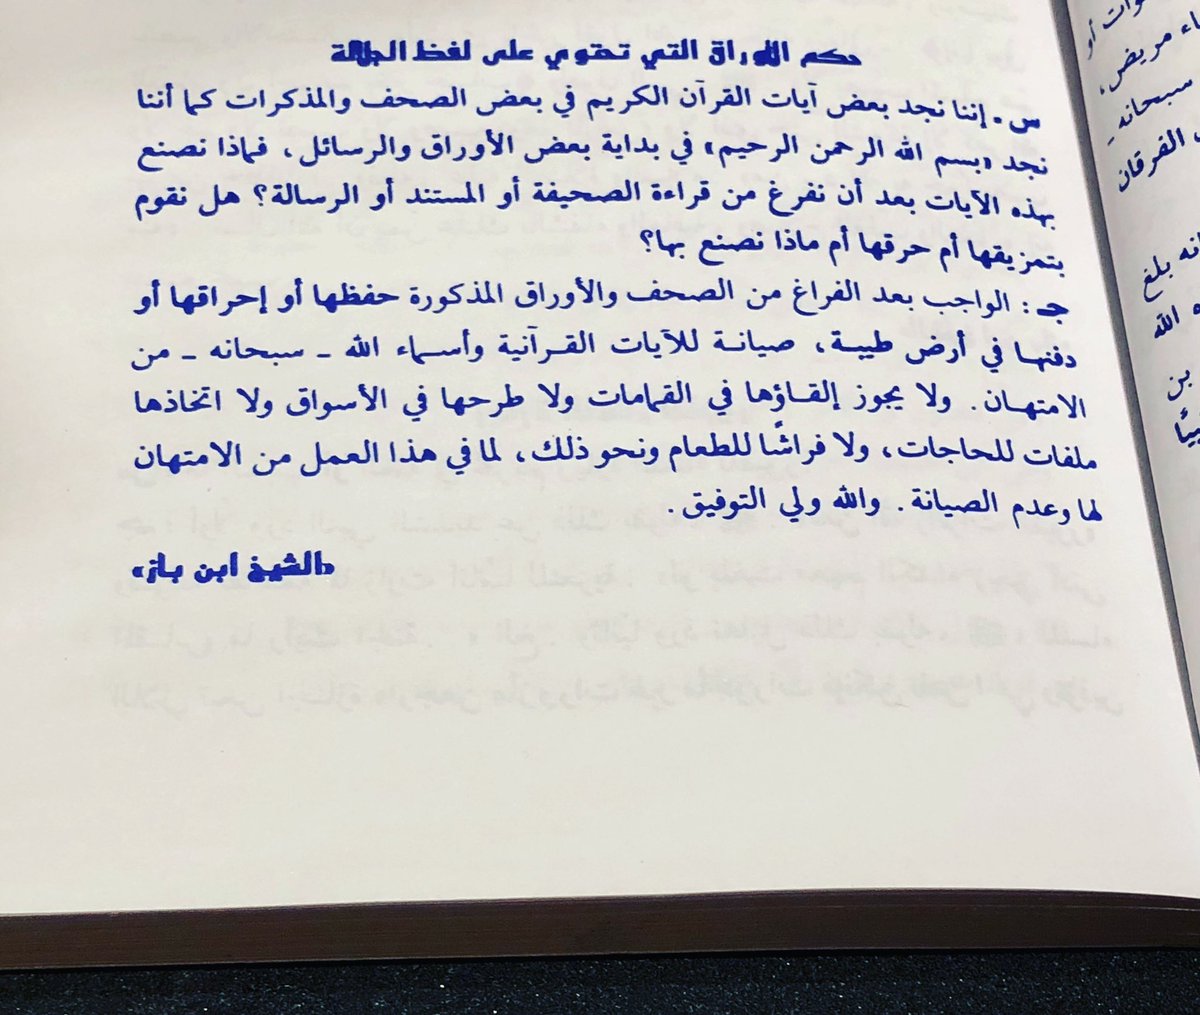 حكم الأوراق التي تحتوي على لفظ الجلالة
س ـ إننا نجد بعض آيات القرآن الكريم في بعض الصحف والمذكرات كما أننا
نجد «بسم الله الرحمن الرحيم» في بداية بعض الأوراق والرسائل، فماذا نصنع
بهذه الآيات بعد أن نفرغ من قراءة الصحيفة أو المستند أو الرسالة؟ هل نقوم
بتمزيقها أم حرقها أم ماذا نصنع بها؟
جـ : الواجب بعد الفراغ من الصحف والأوراق المذكورة حفظها أو إحراقها أو
دفنها في أرض طيبة، صيانة للآيات القرآنية وأسماء الله ـ سبحانه ـ من
الامتهان. ولا يجوز إلقاؤها في القمامات ولا طرحها في الأسواق ولا اتخاذها
ملفات للحاجات، ولا فراشًا للطعام ونحو ذلك، لما في هذا العمل من الامتهان
لها وعدم الصيانة. والله ولي التوفيق.
«الشيخ ابن باز»
أو
مريض،
سبحانه ـ
الفرقان
بلغ
الله
بن